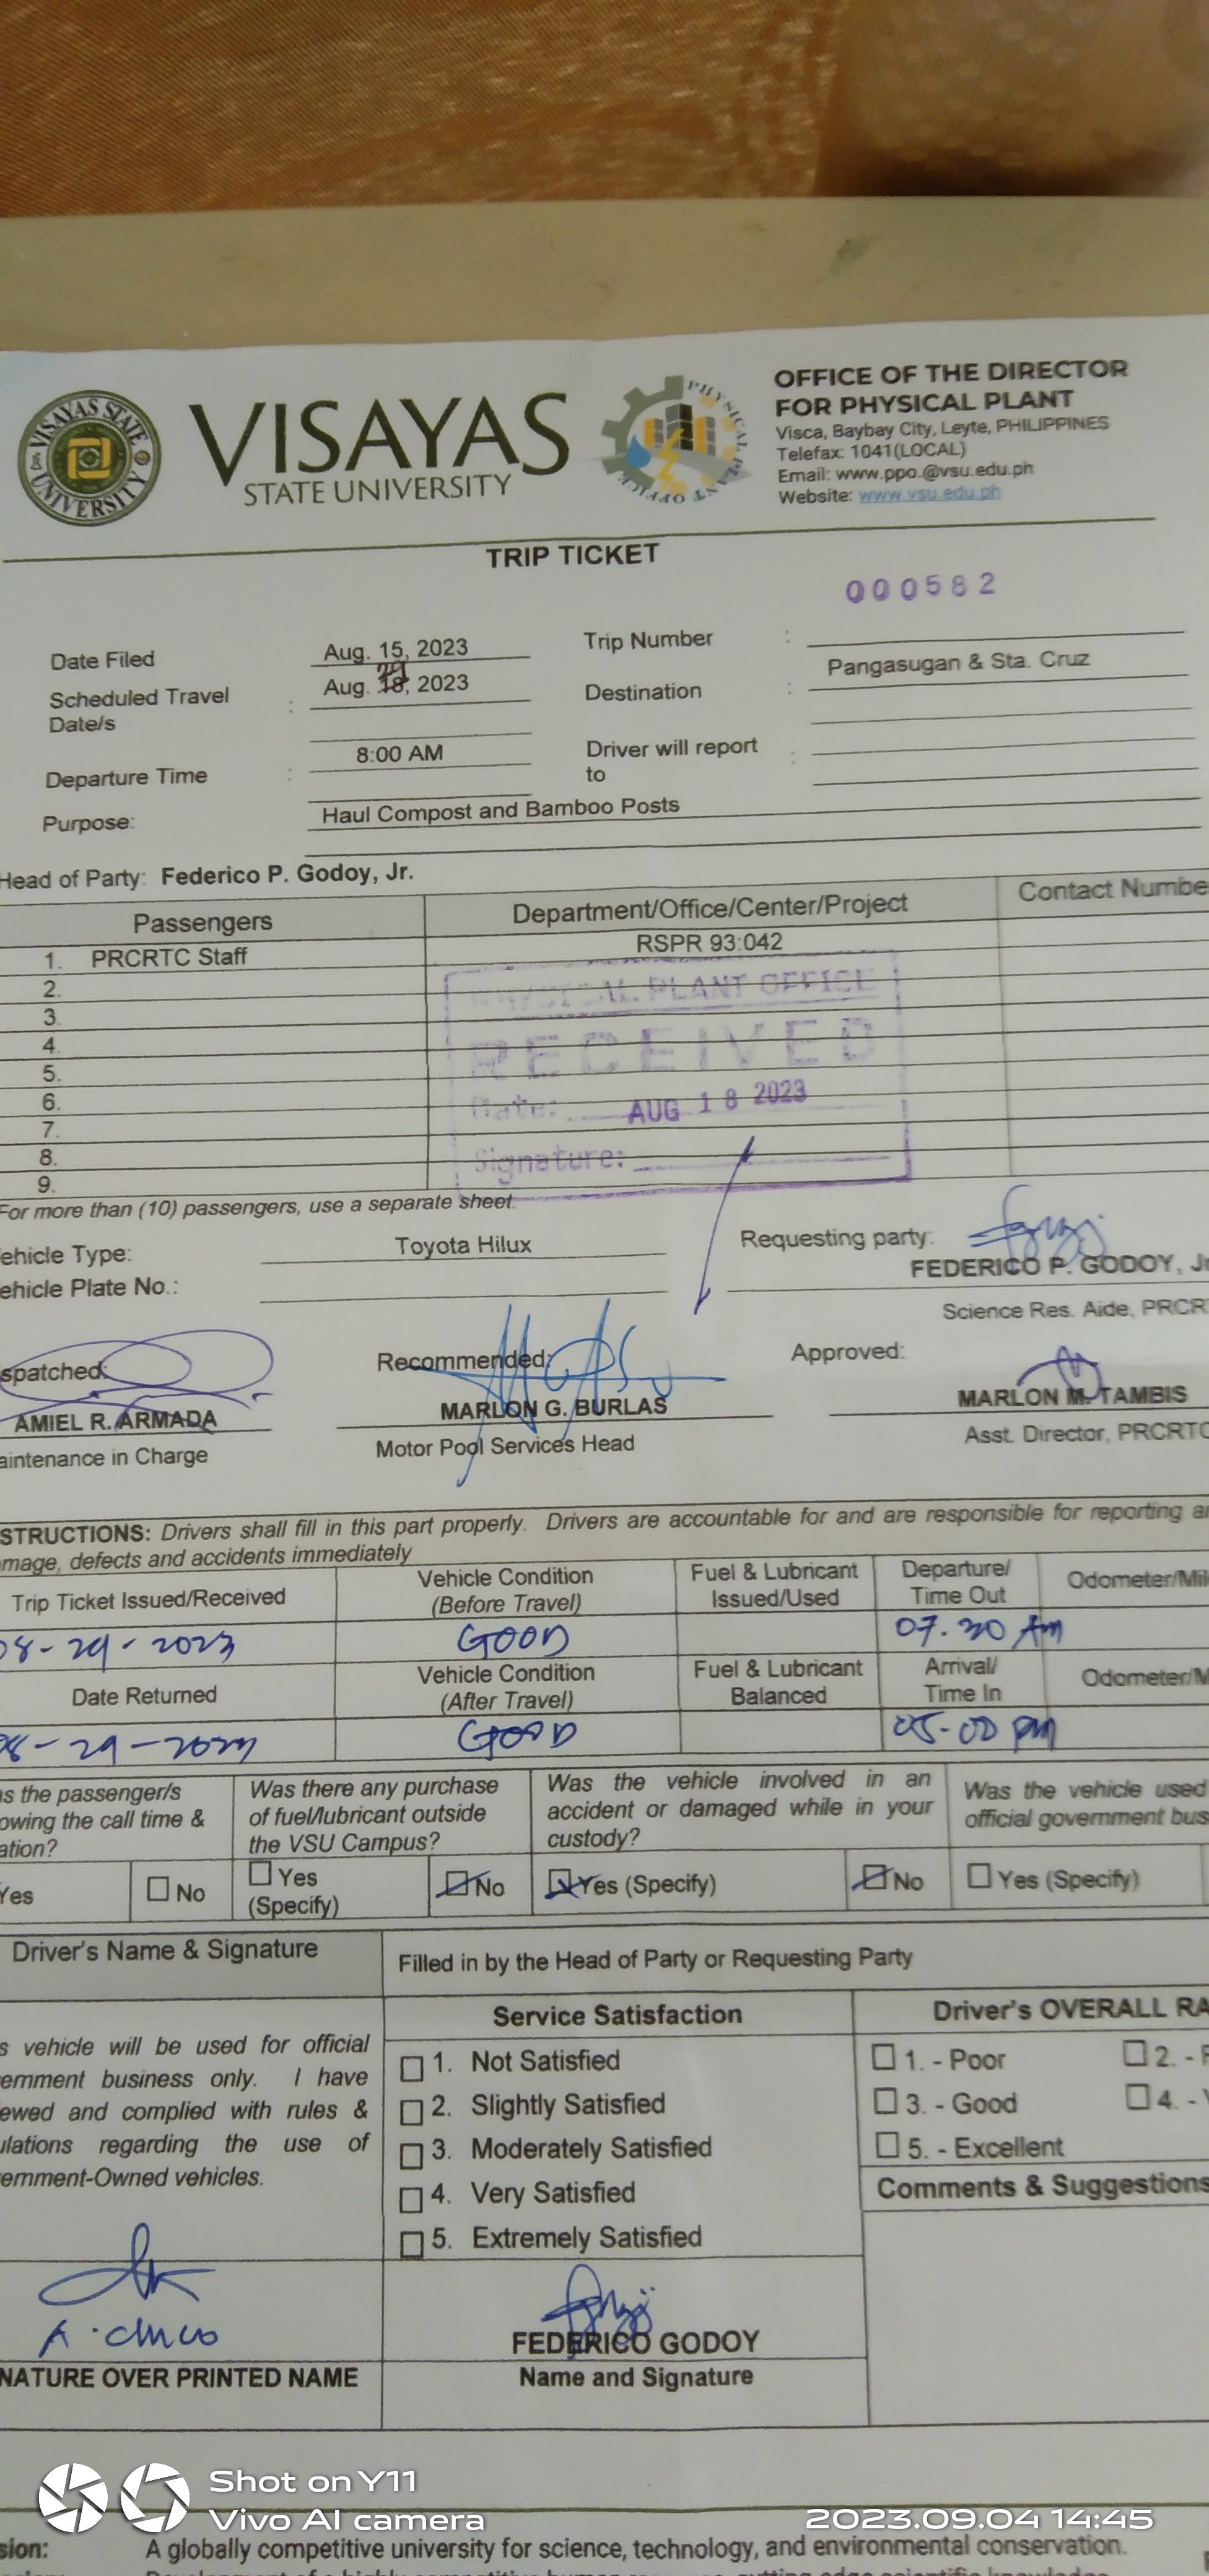 VISAYAS STATE UNIVERSITY
VISAYAS
STATE UNIVERSITY
PHYSICAL PLANT OFFICE
OFFICE OF THE DIRECTOR
FOR PHYSICAL PLANT
Visca, Baybay City, Leyte, PHILIPPINES
Telefax: 1041(LOCAL)
Email: www.ppo.@vsu.edu.ph
Website: www.vsu.edu.ph
TRIP TICKET
000582
Date Filed Aug. 15, 2023 Trip Number :
Scheduled Travel Date/s : Aug. 18, 2023 29 Destination : Pangasugan & Sta. Cruz
Departure Time : 8:00 AM Driver will report to :
Purpose: Haul Compost and Bamboo Posts
Head of Party: Federico P. Godoy, Jr.
Passengers Department/Office/Center/Project Contact Numbe
1. PRCRTC Staff RSPR 93:042
2.
3.
4.
5.
6.
7.
8.
9.
PHYSICAL PLANT OFFICE
RECEIVED
Date: AUG 18 2023
Signature:
For more than (10) passengers, use a separate sheet.
ehicle Type: Toyota Hilux Requesting party:
ehicle Plate No.: FEDERICO P. GODOY, Jr
Science Res. Aide, PRCR
spatched: Recommended: Approved:
AMIEL R. ARMADA MARLON G. BURLAS MARLON M. TAMBIS
aintenance in Charge Motor Pool Services Head Asst. Director, PRCRTC
STRUCTIONS: Drivers shall fill in this part properly. Drivers are accountable for and are responsible for reporting a
mage, defects and accidents immediately
Trip Ticket Issued/Received Vehicle Condition (Before Travel) Fuel & Lubricant Issued/Used Departure/ Time Out Odometer/Mil
08-29-2023 GOOD 07.30 Am
Date Returned Vehicle Condition (After Travel) Fuel & Lubricant Balanced Arrival/ Time In Odometer/M
08-29-2023 GOOD 05-00 pm
s the passenger/s
owing the call time &
ation?
Was there any purchase
of fuel/lubricant outside
the VSU Campus?
Was the vehicle involved in an
accident or damaged while in your
custody?
Was the vehicle used
official government bus
Yes No Yes (Specify) No Yes (Specify) No Yes (Specify)
Driver's Name & Signature Filled in by the Head of Party or Requesting Party
s vehicle will be used for official
ernment business only. I have
ewed and complied with rules &
ulations regarding the use of
ernment-Owned vehicles.
Service Satisfaction
1. Not Satisfied
2. Slightly Satisfied
3. Moderately Satisfied
4. Very Satisfied
5. Extremely Satisfied
Driver's OVERALL RA
1. - Poor 2. - F
3. - Good 4. - V
5. - Excellent
Comments & Suggestions
FEDERICO GODOY
NATURE OVER PRINTED NAME Name and Signature
Shot on Y11
Vivo AI camera
2023.09.04 14:45
sion: A globally competitive university for science, technology, and environmental conservation.